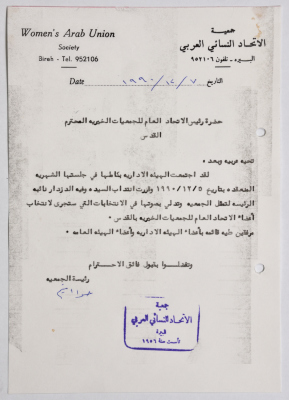 Women's Arab Union
Society
Bireh - Tel. 952106
جمعية
الاتحاد النسائي العربي
البيره - تلفون ٩٥٢١٠٦
Date ١٩٩٠/١٢/٧ التاريخ
حضرة رئيس الاتحاد العام للجمعيات الخيريه المحترم
القدس
تحيه عربيه وبعد ،
لقد اجتمعت الهيئه الاداريه بكاملها في جلستها الشهريه
المنعقده بتاريخ ١٩٩٠/١٢/٥ وقررت انتداب السيده وفيه الدزدار نائبه
الرئيسه لتمثل الجمعيه وتدلي بصوتها في الانتخابات التي ستجرى لانتخاب
أعضاء الاتحاد العام للجمعيات الخيريه بالقدس .
مرفقين طيه قائمه بأعضاء الهيئه الاداريه وأعضاء الهيئه العامه .
وتفضلوا بقبول فائق الاحترام
رئيسة الجمعيه
جمعية
الاتحاد النسائي العربي
البيرة
تأسست سنة ١٩٥٦